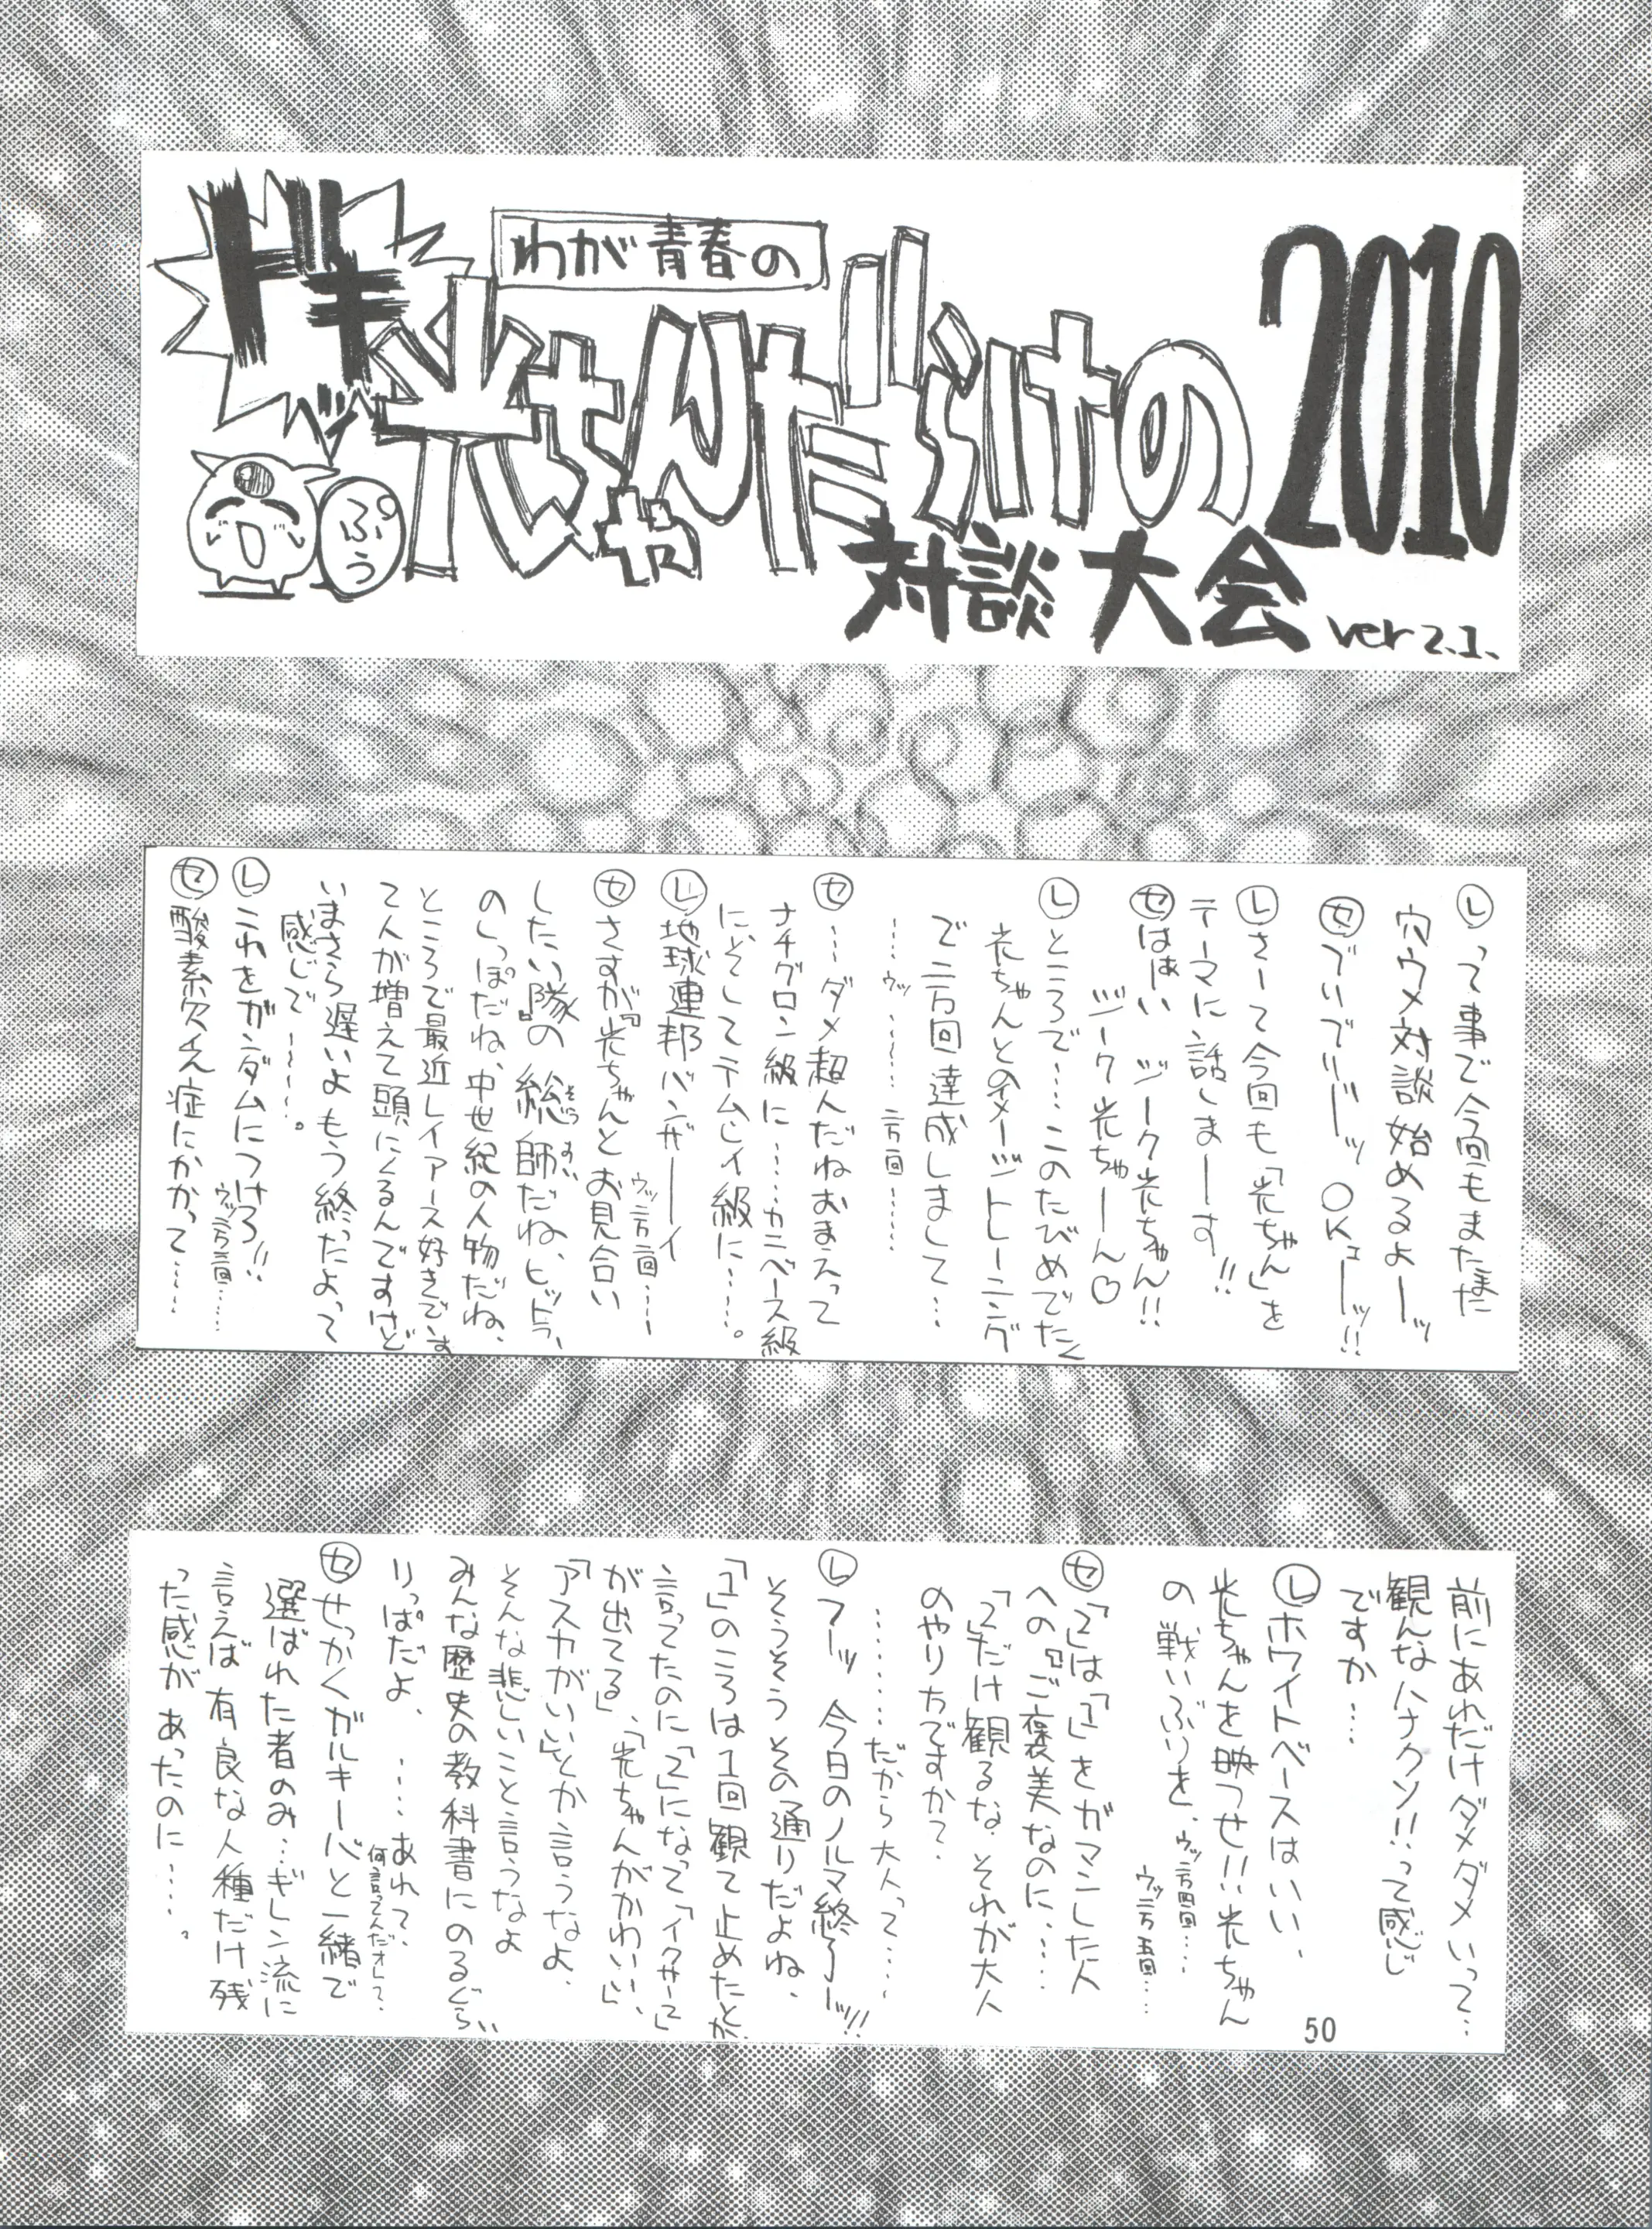 ドキッ
わが青春の
光ちゃんだらけの
2010
対談大会 ver 2.1.
ぷぅ
Ⓛって事で今回もまたまた
穴ウメ対談始めるよーッ
㋝でいでりーッ OKェーッ!!
Ⓛさーて今回も「光ちゃん」を
テーマに話しまーす!!
㋝はぁい ジーク光ちゃん!!
ジーク光ちゃーん♡
Ⓛところで…このたびめでたく
光ちゃんとのイメージトレーニング
で二万回達成しまして…
……ウッ……二万回……
㋝…ダメ超人だねおまえって
ナチグロン級に……カニベース級
に、そしてテムレイ級に……。
Ⓛ地球連邦バンザーーイ
ウッ二万回……
㋝さすが『光ちゃんとお見合い
したい隊』の総師だね、ヒットラー
そうすい
のしっぽだね、中世紀の人物だね、
ところで最近レイアース好きでーす
て人が増えて頭にくるんですけど
いまさら遅いよもう終ったよって
感じで……。
Ⓛこれをガンダムにつけろ!!
ウッ二万三回……
㋝酸素欠乏症にかかって……
前にあれだけダメダメいって…
観んなハナクソ!!って感じ
ですか…
Ⓛホワイトベースはいい、
光ちゃんを映つせ!!光ちゃん
の戦いぶりを、ウッ二万四回……
ウッ二万五回……
㋝「2」は「1」をガマンした人
への『ご褒美なのに……
「2」だけ観るな、それが大人
のやり方ですか?
………だから大人って……
Ⓛフーッ 今日のノルマ終了ーッ!!
そうそうその通りだよね、
「1」のころは1回観て止めたとか
言ってたのに「2」になって「イクサーで
が出てる」、「光ちゃんがかわいい」
「アスカがいい」とか言うなよ、
そんな悲しいこと言うなよ
みんな歴史の教科書にのるぐらい
りっぱだよ、……あれ?、
何言ってんだオレ?、
㋝せっかくガルキーバと一緒で
選ばれた者のみ…ギレン流に
言えば有良な人種だけ残
った感があったのに……。
50